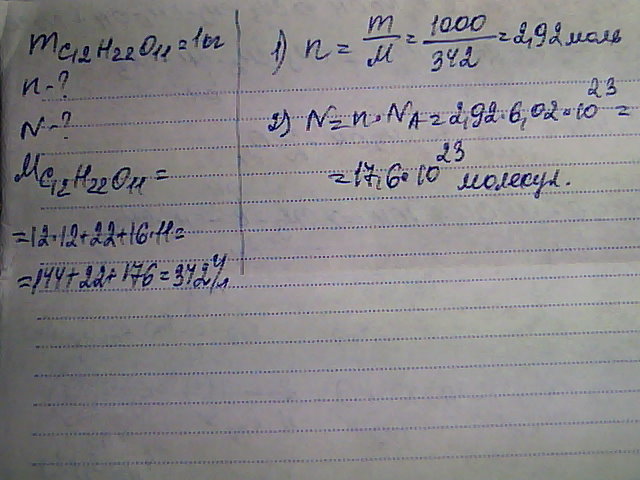 mC12H22O11 = 1кг
n - ?
N - ?
MC12H22O11 =
=12·12+22+16·11=
=144+22+176=342г/л
1) n = m/M = 1000/342 = 2,92 моль
2) N = n · NA = 2,92 · 6,02 · 10^23 =
=17,6 · 10^23 молекул.